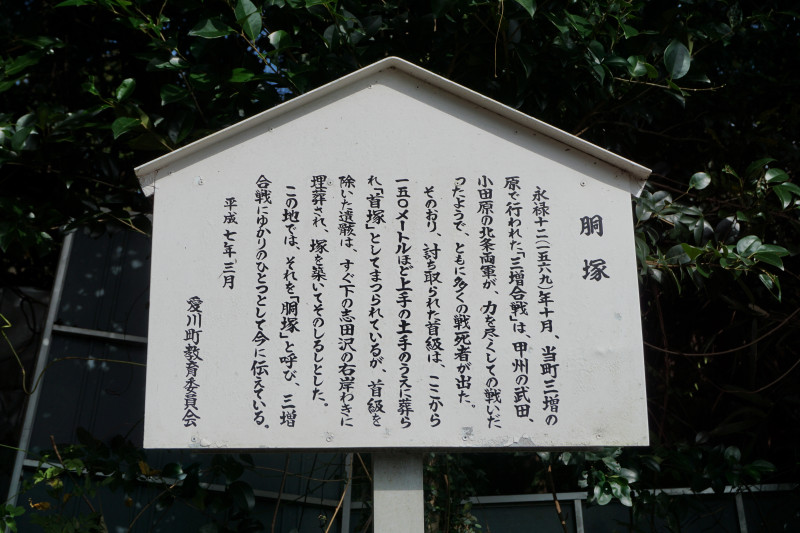 胴塚
永禄十二(一五六九)年十月、当町三増の
原で行われた「三増合戦」は、甲州の武田、
小田原の北条両軍が、力を尽くしての戦いだ
ったようで、ともに多くの戦死者が出た。
そのおり、討ち取られた首級は、ここから
一五〇メートルほど上手の土手のうえに葬ら
れ「首塚」としてまつられているが、首級を
除いた遺骸は、すぐ下の志田沢の右岸わきに
埋葬され、塚を築いてそのしるしとした。
この地では、それを「胴塚」と呼び、三増
合戦にゆかりのひとつとして今に伝えている。
平成七年三月
愛川町教育委員会